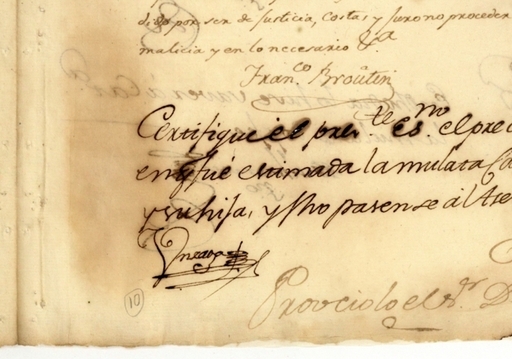 dido por ser de Justicia, Costas y Juro no proceder
malicia y en lo necesario &a
Franco. Broûtin
Certifique el preste. esno. el prec
en qe fué estimada la mulata Ca
y su hija, y fho pasense al
Proveiolo el Sr. D
10